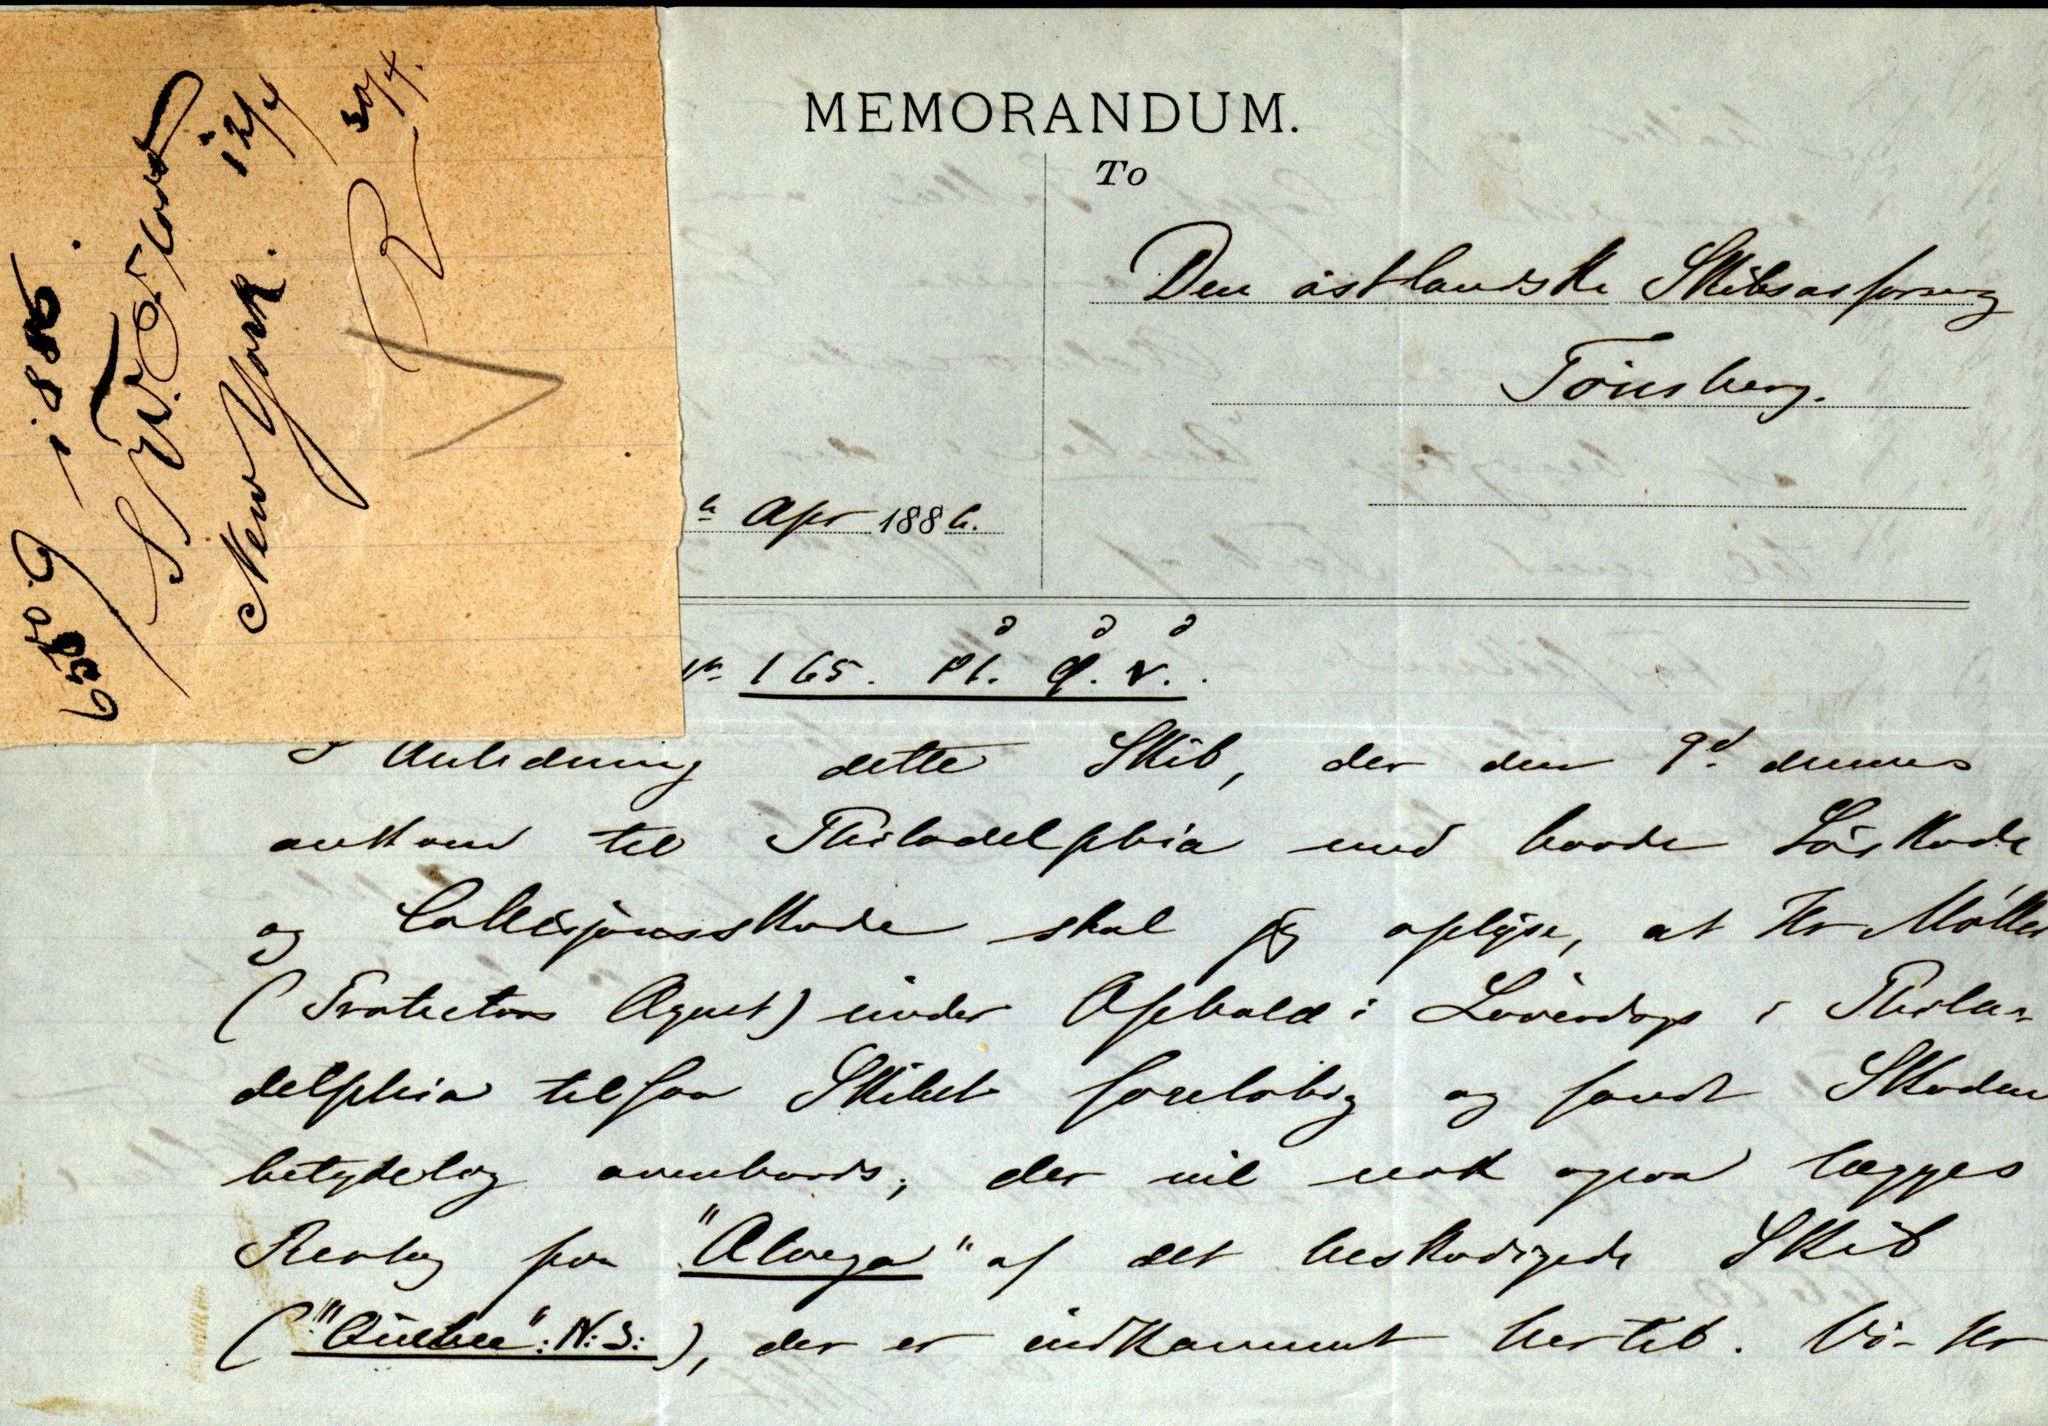 6580. 9 – 1886.
S. W. O. Flood
New York. 12/4
R 30/4.
MEMORANDUM.
To
Den østlandske Skibsasforeng
Tönsberg.
Apr 1886.
165. Pl. Q. V.
I Anledning dette Skib, der den 9d. dennes
ankom til Philadelphia med baade Söskade
og Collisjonsskade skal jeg oplyse, at Hr Møller
(Protectors Agent) under Ophold i Löverdags i Phila-
delphia tilsaa Skibet foreløbig og fandt Skaden
betydelig ovenbords; der vil nok ogsaa lægges
Beslag paa "Atvega" af det beskadigede Skib
("Quebec": N: S:), der er indkommet hertil. Vi – Hr